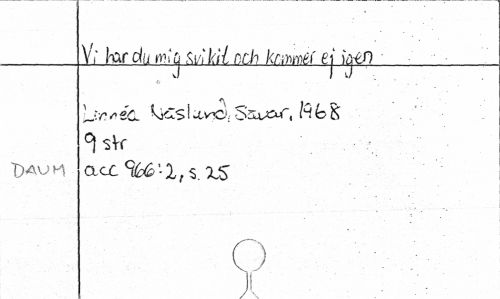 Vi har du mig svikit och kommer ej igen
Linnéa Näslund, Sävar, 1968
9 str
DAUM acc 966:2, s. 25